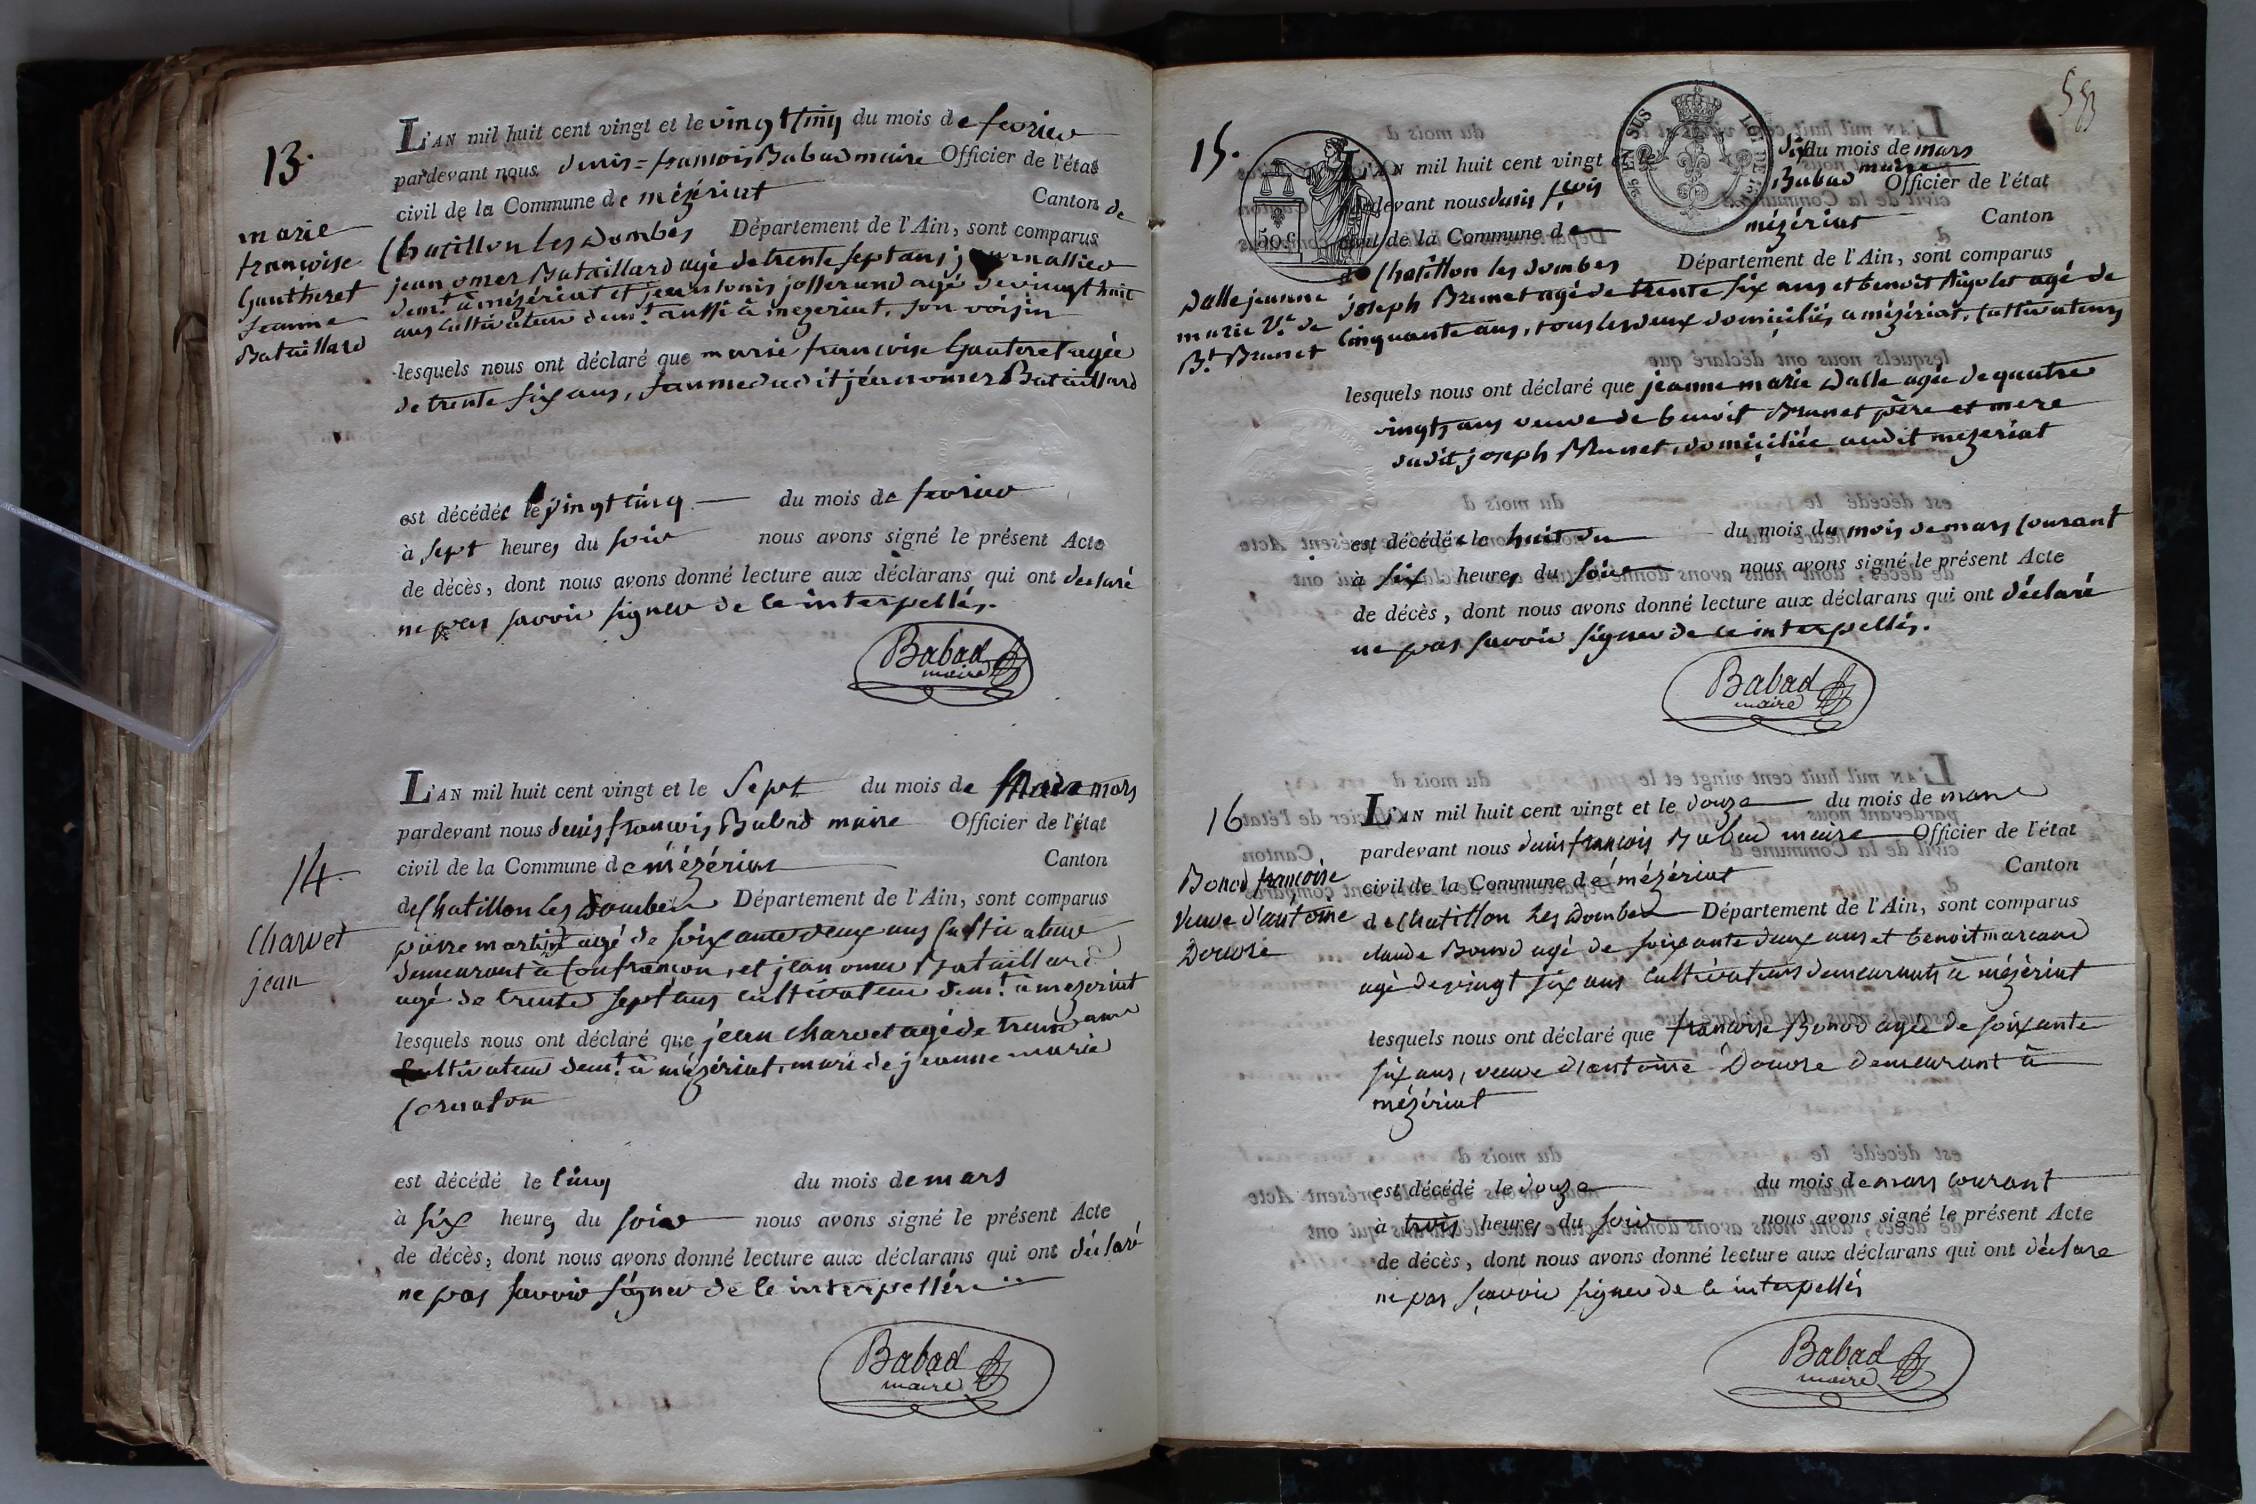 13.
marie
francoise
Gautheret
femme
Bataillard
L'AN mil huit cent vingt et le vingt cinq du mois de fevrier
pardevant nous denis=francois Babad maire Officier de l'état
civil de la Commune de mézériat Canton de
Chatillon les dombes Département de l'Ain, sont comparus
jean omer Bataillard agé de trente sept ans journallier
demt. à mézériat et jean louis josserand agé de vingt huit
ans cultivateur demt. aussi à mezeriat, son voisin
lesquels nous ont déclaré que marie francoise Gauteret agée
de trente six ans, famme dudit jean omer Bataillard
est décédée le vingt cinq du mois de fevrier
à sept heures du soir nous avons signé le présent Acte
de décès, dont nous avons donné lecture aux déclarans qui ont déclaré
ne pas savoir signer de ce interpellés.
Babad
maire
14.
Charvet
jean
L'AN mil huit cent vingt et le Sept du mois de mars
pardevant nous denis francois Babad maire Officier de l'état
civil de la Commune de mézériat Canton
de Chatillon les Dombes Département de l'Ain, sont comparus
pierre martin agé de soixante deux ans Cultivateur
demeurant à Confrançon, et jean omer Bataillard
agé de trente sept ans cultivateur demt. à mezeriat
lesquels nous ont déclaré que jean Charvet agé de trente ans
Cultivateur demt. à mézériat, mari de jeanne marie
Cornaton
est décédé le cinq du mois de mars
à six heures du soir nous avons signé le présent Acte
de décès, dont nous avons donné lecture aux déclarans qui ont déclaré
ne pas savoir signer de ce interpellés
Babad
maire
553
15.
Dalle jeanne
marie Ve. de
Bt. Brunet
EN SUS
50 c
L'AN mil huit cent vingt et le dix du mois de mars
pardevant nous denis fçois Babad maire Officier de l'état
civil de la Commune de mézériat Canton
de Chatillon les dombes Département de l'Ain, sont comparus
joseph Brunet agé de trente six ans et benoit Rigolet agé de
cinquante ans, tous les deux domiciliés a mézériat, Cultivateurs
lesquels nous ont déclaré que jeanne marie Dalle agée de quatre
vingts ans veuve de benoit Brunet père et mere
dudit joseph Brunet, domiciliée audit mezeriat
est décédée le huit du du mois du mois de mars courant
à six heures du soir nous avons signé le présent Acte
de décès, dont nous avons donné lecture aux déclarans qui ont déclaré
ne pas savoir signer de ce interpellés.
Babad
maire
16
Bonod françoise
veuve d'antoine
Douvre
L'AN mil huit cent vingt et le douze du mois de mars
pardevant nous denis francois Babad maire Officier de l'état
civil de la Commune de mézériat Canton
de Chatillon les Dombes Département de l'Ain, sont comparus
claude Bonod agé de soixante deux ans et benoit
agé de vingt six ans cultivateurs demeurants à mézériat
lesquels nous ont déclaré que francoise Bonod agée de soixante
six ans, veuve d'antoine Douvre demeurant à
mézériat
est décédé le douze du mois de mars courant
à trois heures du soir nous avons signé le présent Acte
de décès, dont nous avons donné lecture aux déclarans qui ont déclare
ne pas sçavoir signer de ce interpellés
Babad
maire